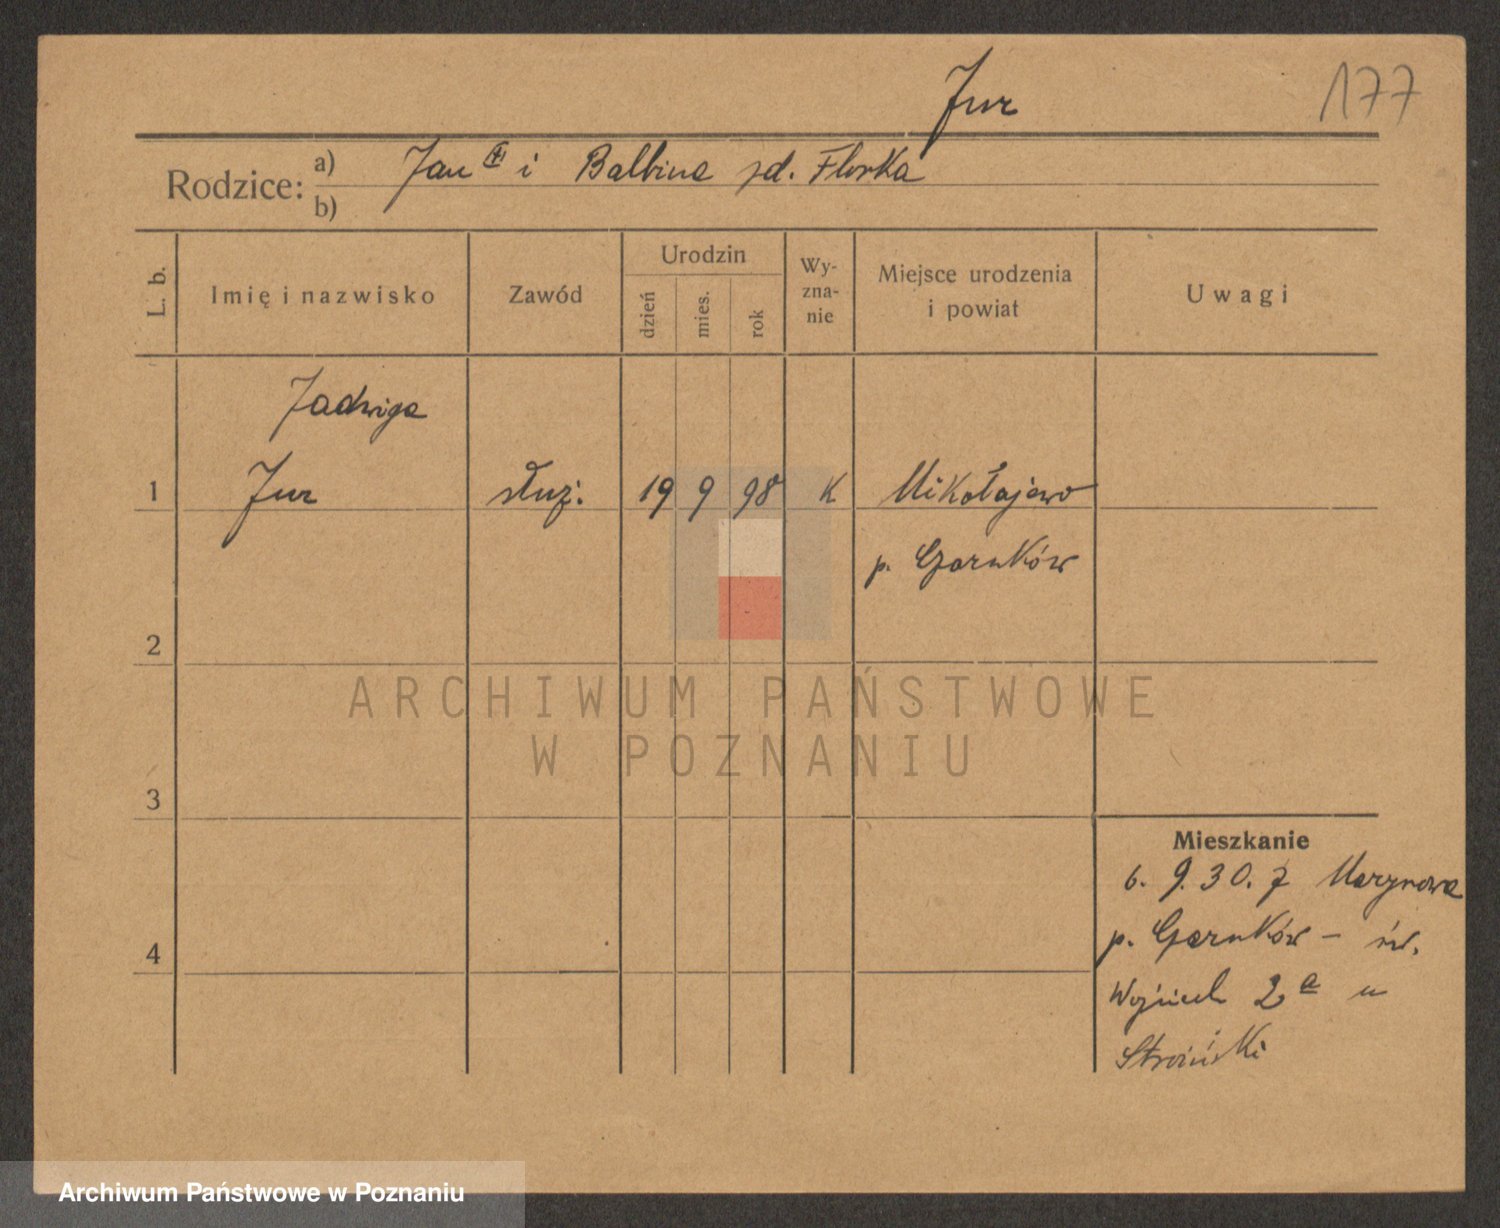 Jur
177
Rodzice: a) Jan (+) i Balbina zd. Florka
b)
L. b.
Imię i nazwisko
Zawód
Urodzin
dzień
mies.
rok
Wy-
zna-
nie
Miejsce urodzenia
i powiat
Uwagi
Jadwiga
1 Jur służ. 19 9 98 K Mikołajewo
p. Czarnków
2
ARCHIWUM PAŃSTWOWE
W POZNANIU
3
Mieszkanie
6. 9. 30. z
p. Czarnków – św.
4
Wojciech 2a u
Archiwum Państwowe w Poznaniu